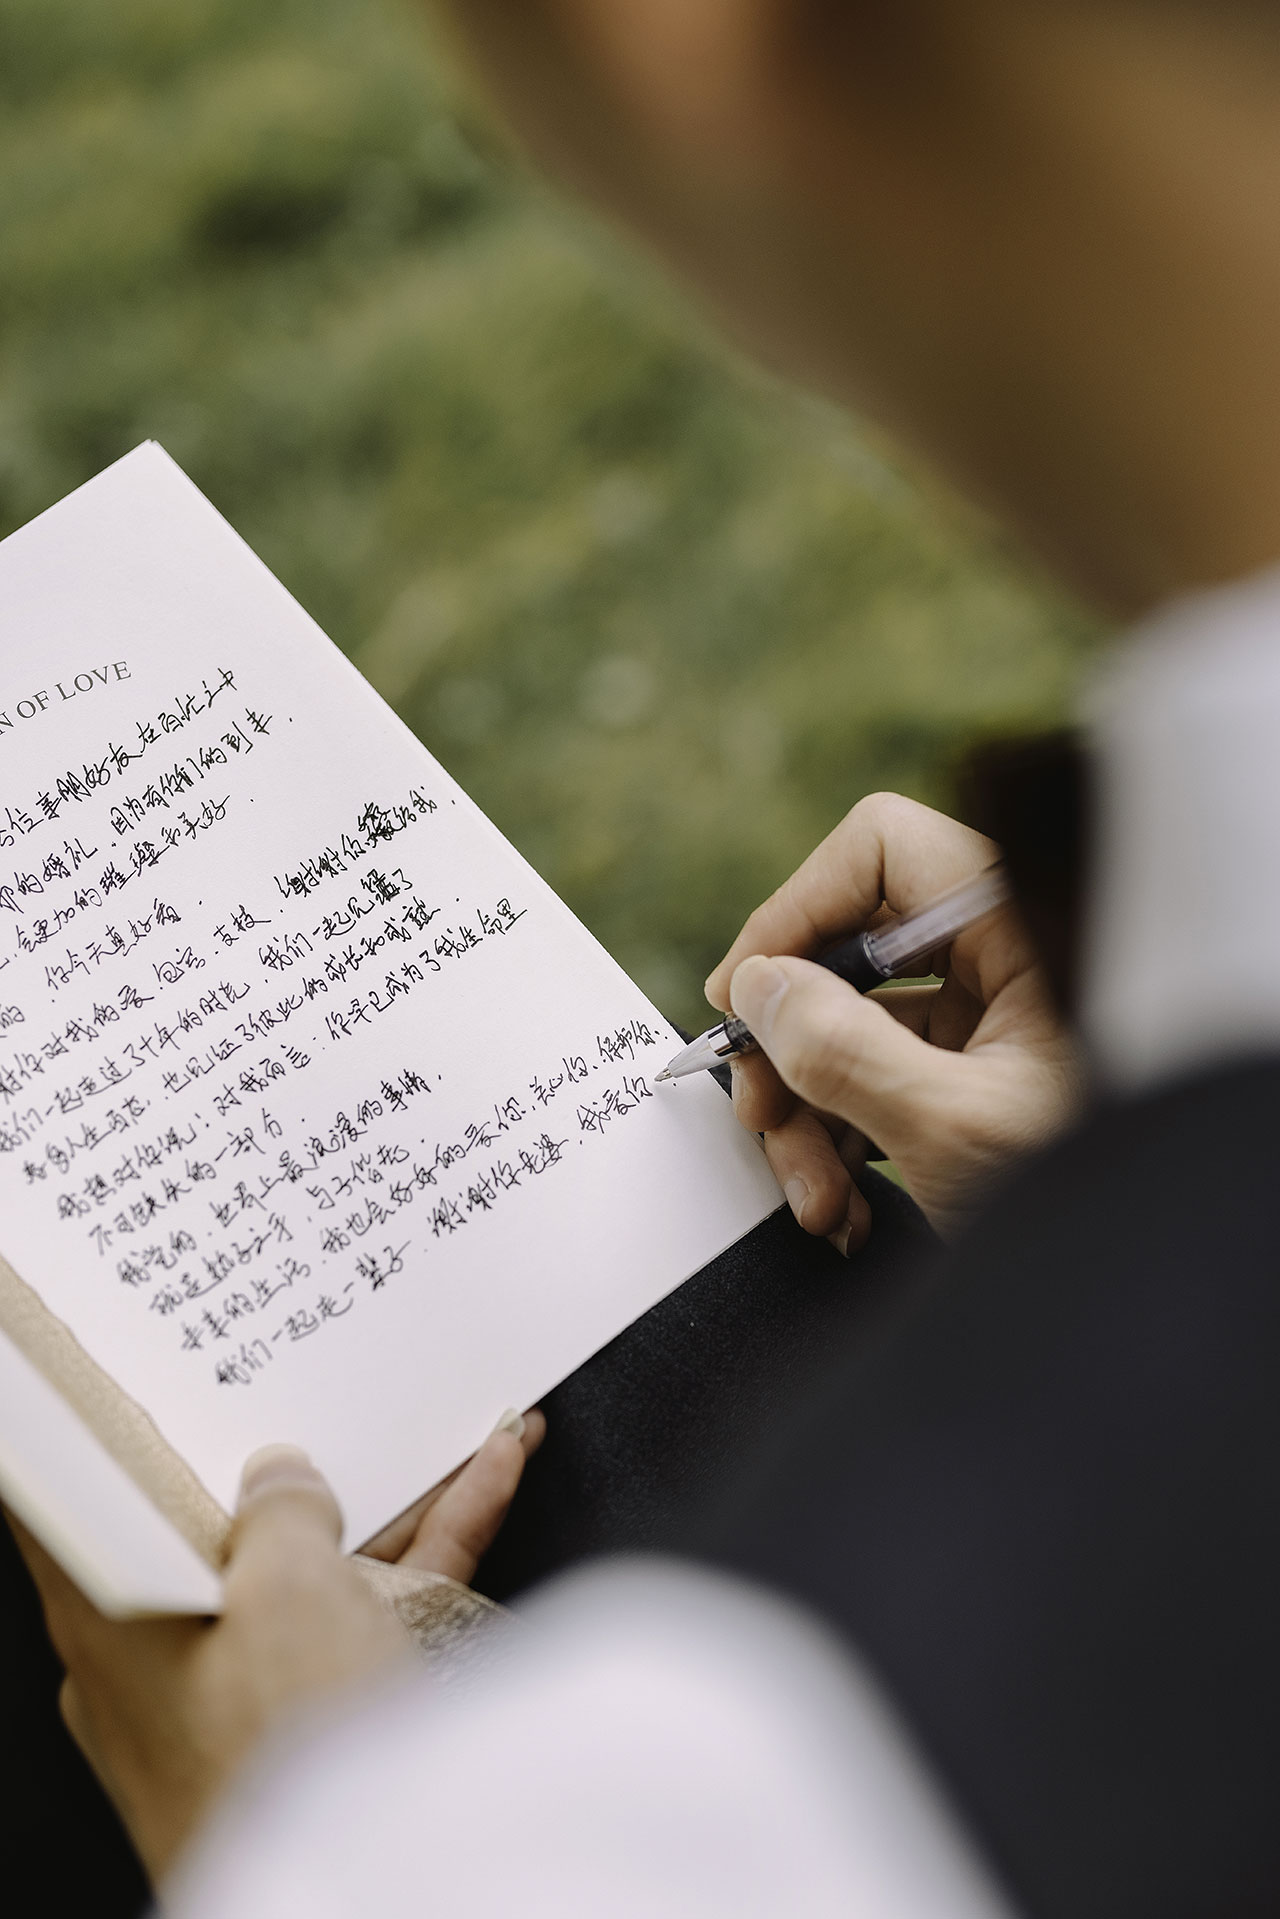 N OF LOVE
各位亲朋好友在百忙之中
们的婚礼，因为有你们的到来，
会更加的璀璨和美好．
的，你今天真好看．
谢你对我的爱、包容、支持，谢谢你嫁给我．
我们一起走过了十年的时光，我们一起见证了
人生百态，也见证了彼此的成长和成熟．
我想对你说：对我而言：你早已成为了我生命里
不可缺失的一部分．
我觉的，世界上最浪漫的事情．
就是执子之手，与子偕老．
未来的生活，我也会好好的爱你、关心你、保护你．
我们一起走一辈子．谢谢你老婆，我爱你．